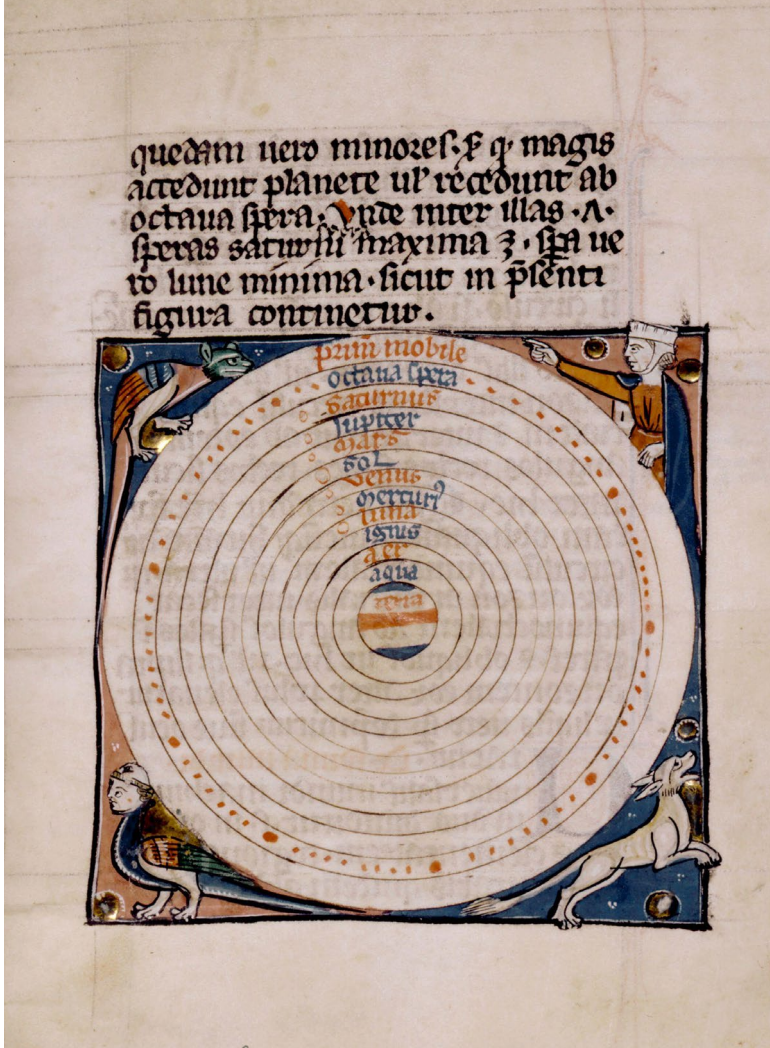 quedam uero minores. ꝑ q. magis
accedunt planete ul' recedunt ab
octaua spera. Vnde inter illas .A.
speras saturni maxima ʒ. spa ue
ro lune minima. sicut in p̄senti
figura continetur.
primū mobile
octaua spera
Saturnus
Jupiter
Mars
Sol
Venus
Mercuriꝰ
luna
ignis
aer
aqua
terra